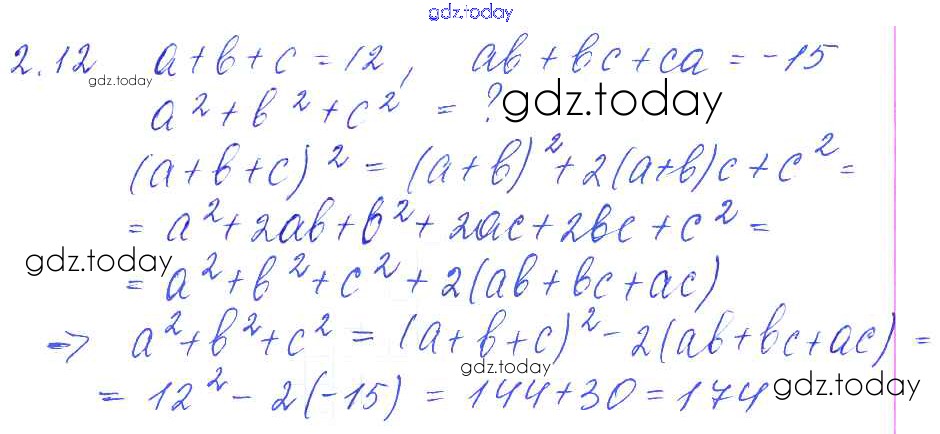 gdz.today
2.12 a+b+c=12, ab+bc+ca=-15
gdz.today
a²+b²+c² = ? gdz.today
(a+b+c)² = (a+b)²+2(a+b)c+c² =
= a²+2ab+b²+2ac+2bc+c² =
gdz.today
= a²+b²+c²+2(ab+bc+ac)
=> a²+b²+c² = (a+b+c)²-2(ab+bc+ac) =
gdz.today
= 12²-2(-15) = 144+30=174 gdz.today